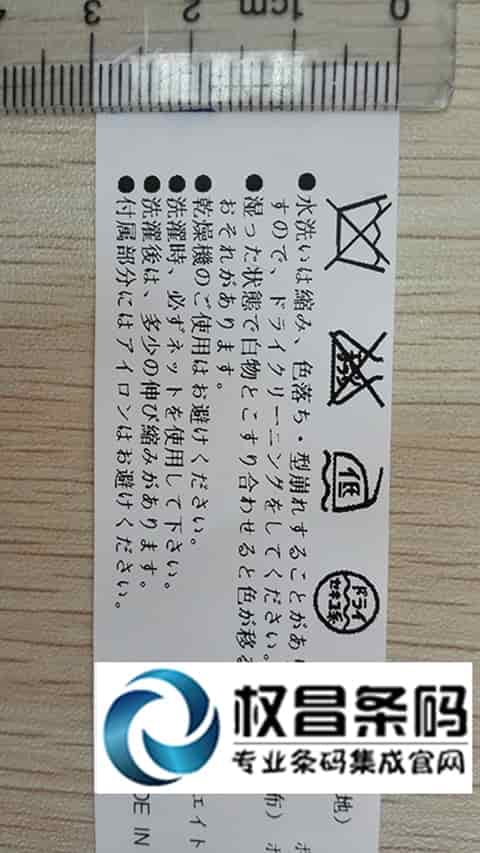 0
1cm
2
3
4
エンソサラシ
低
ドライ
セキユ系
●水洗いは縮み、色落ち・型崩れすることがあり
すので、ドライクリーニングをしてください。
●湿った状態で白物とこすり合わせると色が移る
おそれがあります。
●乾燥機のご使用はお避けください。
●洗濯時、必ずネットを使用して下さい。
●洗濯後は、多少の伸び縮みがあります。
●付属部分にはアイロンはお避けください。
地)
布)
エイト
DE IN
权昌条码
专业条码集成官网